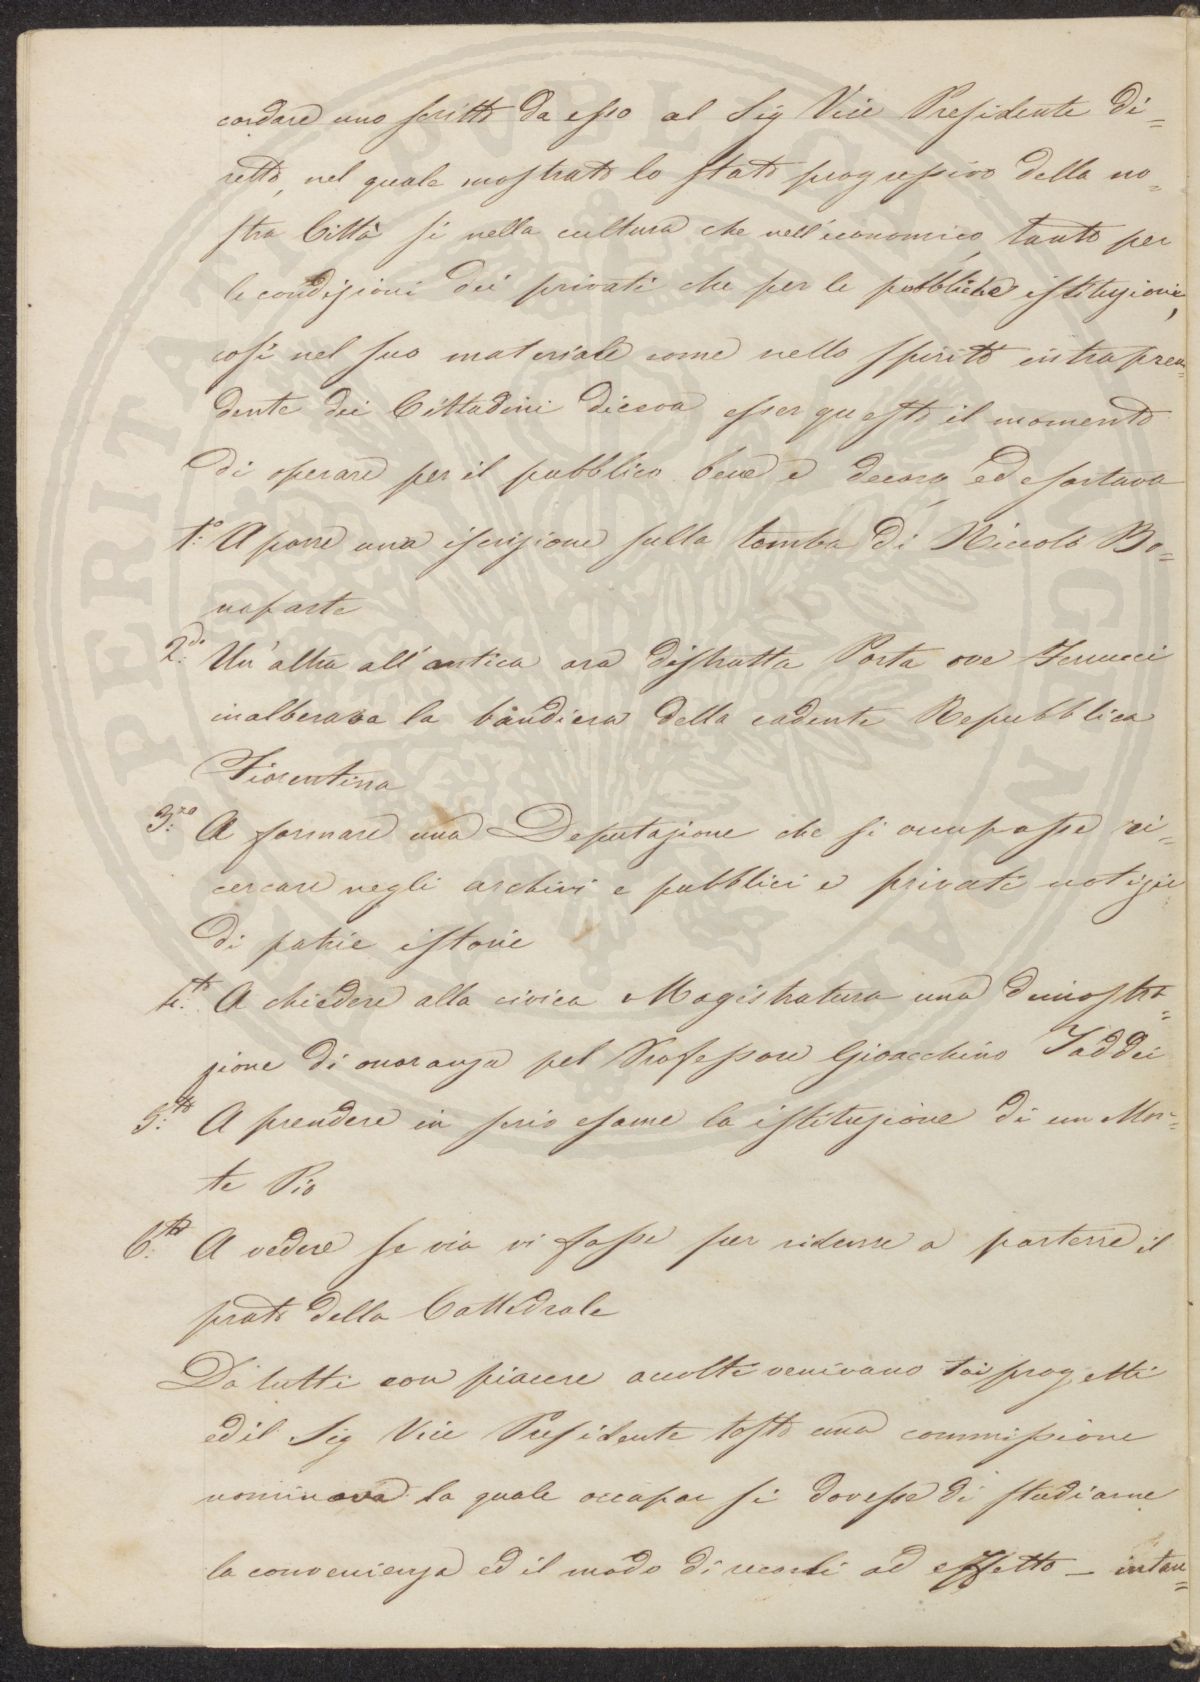 cordare uno scritto da esso al Sig Vice Presidente di=
retto, nel quale mostrato lo stato progressivo della no=
stra Città sì nella cultura che nell'economico, tanto per
le condizioni dei privati che per le pubbliche istituzioni,
così nel suo materiale come nello spirito intrapren=
dente dei Cittadini diceva esser questo il momento
di operare per il pubblico bene e decoro, ed esortava
1.° A porre una iscrizione sulla tomba di Niccolò Bo=
naparte
2.do Un'altra all'antica ora distrutta Porta ove Ferrucci
inalberava la bandiera della cadente Repubblica
Fiorentina
3.zo A formare una Deputazione che si occupasse ri=
cercare negli archivi e pubblici e privati notizie
di patrie istorie
4.to A chiedere alla civica Magistratura una dimostra=
zione di onoranza pel Professore Gioacchino Taddei
5.to A prendere in serio esame la istituzione di un Mon=
te Pio
6.to A vedere se via vi fosse per ridurre a parterre il
prato della Cattedrale
Da tutti con piacere accolti venivano tai progetti
ed il Sig Vice Presidente tosto una commissione
nominava la quale occupar si dovesse di studiarne
la convenienza ed il modo di recarli ad effetto — intan=